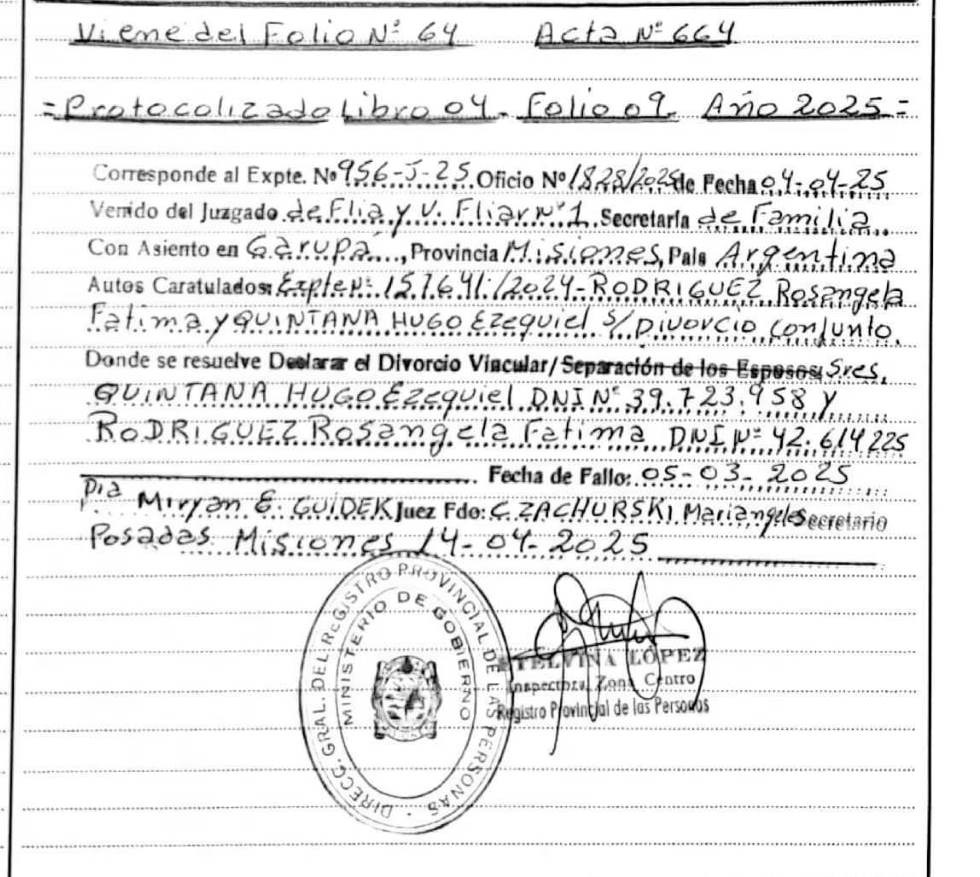 Viene del Folio Nº 64 Acta Nº 664
= Protocolizado Libro 04 - Folio 09 Año 2025 =
Corresponde al Expte. Nº 956-J-25 Oficio Nº 1828/2025 de Fecha 04-04-25
Venido del Juzgado de Flia y V. Fliar Nº 1, Secretaría de Familia
Con Asiento en Garupá, Provincia Misiones, País Argentina
Autos Caratulados: Expte Nº 157641/2024-RODRIGUEZ Rosangela
Fatima y QUINTANA HUGO Ezequiel S/Divorcio Conjunto
Donde se resuelve Declarar el Divorcio Vincular/Separación de los Esposos: Sres.
QUINTANA HUGO Ezequiel DNI Nº 39.723.958 y
RODRIGUEZ Rosangela Fatima DNI Nº 42.614225
Fecha de Fallo: 05-03-2025
Miryan E. GUIDEK Juez Fdo: CZACHURSKI Mariangeles Secretario
Posadas Misiones 14-04-2025
DIRECC. GRAL. DEL REGISTRO PROVINCIAL DE LAS PERSONAS
MINISTERIO DE GOBIERNO
ETELVINA LÓPEZ
Inspectora Zona Centro
Registro Provincial de las Personas